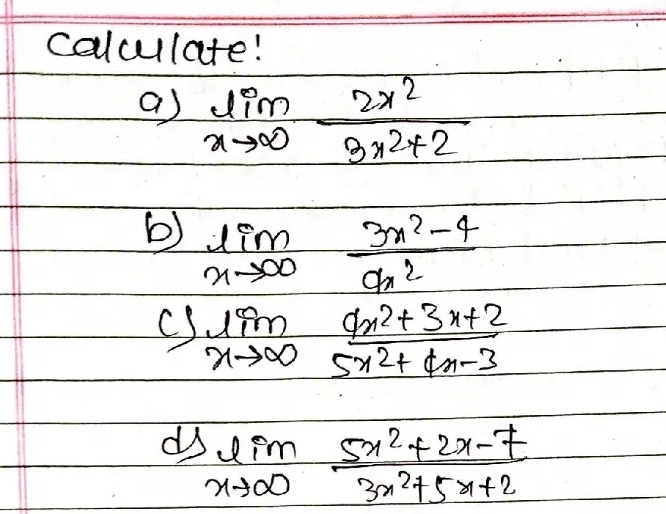 Calculate!
a) lim 2x²
x→∞ 3x²+2
b) lim 3x²-4
x→∞ 4x²
c) lim 4x²+3x+2
x→∞ 5x²+4x-3
d) lim 5x²+2x-7
x→∞ 3x²+5x+2